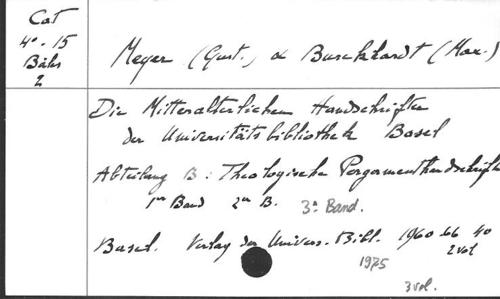 Cat
4° - 15
Bâles
2
Meyer (Gust.) & Burckhardt (Max.)
Die Mitteralterlichen Handschriften
der Universitätsbibliothek Basel
Abteilung B : Theologische Pergamenthandschrift
1er Band 2er B. 3e Band.
Basel. Verlag der Univers. Bibl. 1960-66 4°
2 vol
1975
3 vol.